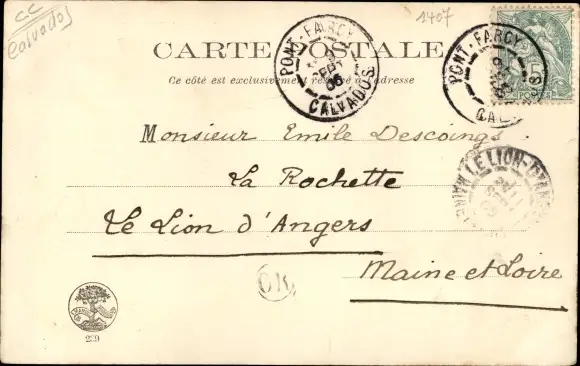 CC
Calvados
1407
CARTE POSTALE
Ce côté est exclusivement réservé à l'adresse
PONT-FARCY
SEPT
CALVADOS
PONT-FARCY
POSTES
LE LION-D'ANGERS
Monsieur Emile Descoings
La Rochette
Le Lion d'Angers
Maine et Loire
OR